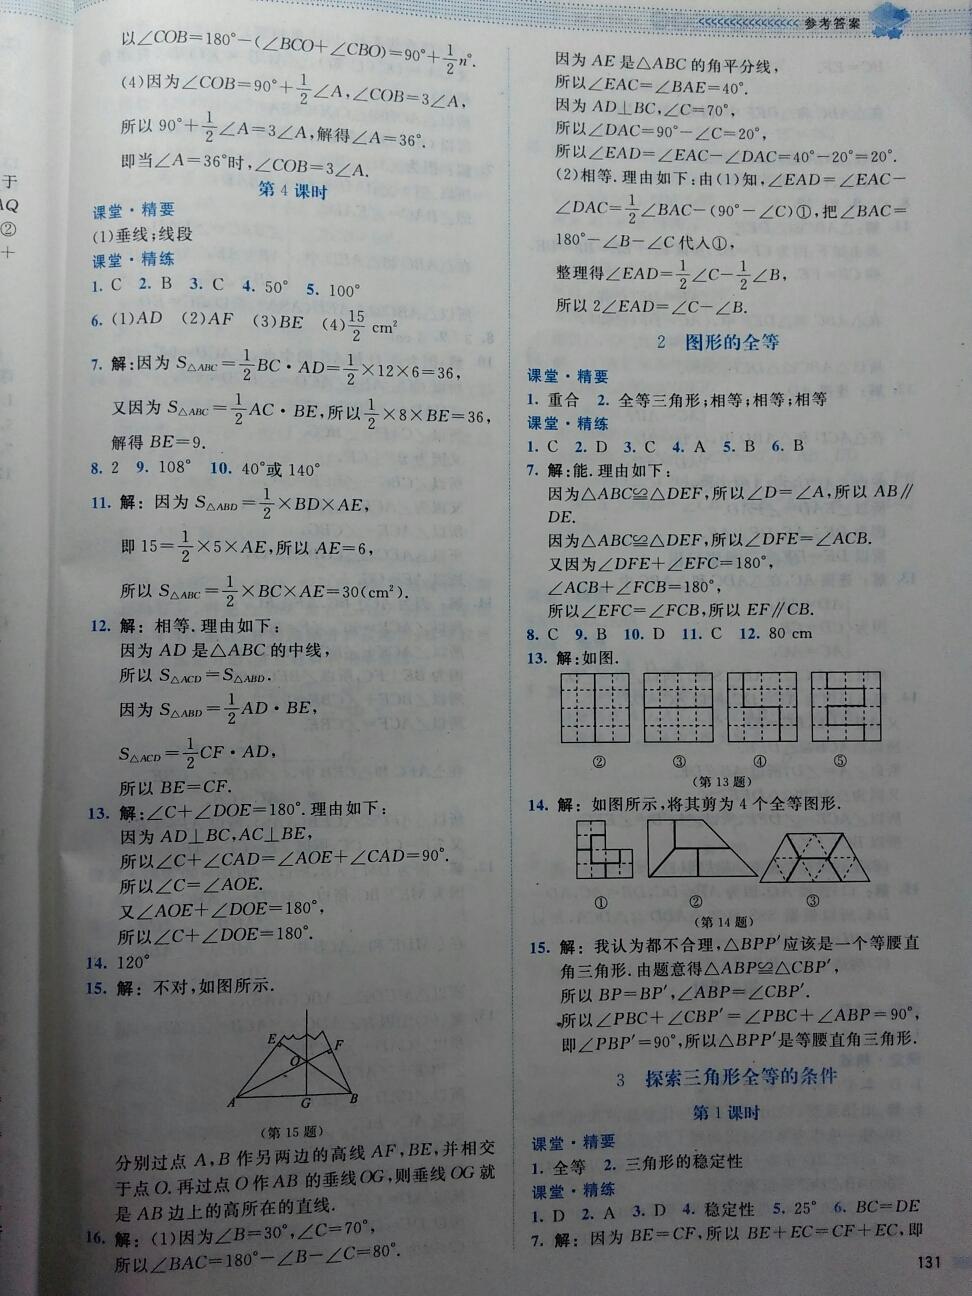 参考答案
以∠COB=180°-(∠BCO+∠CBO)=90°+1/2 n°.
(4)因为∠COB=90°+1/2∠A,∠COB=3∠A,
所以 90°+1/2∠A=3∠A,解得∠A=36°.
即当∠A=36°时,∠COB=3∠A.
第 4 课时
课堂·精要
(1)垂线;线段
课堂·精练
1. C 2. B 3. C 4. 50° 5. 100°
6. (1)AD (2)AF (3)BE (4)15/2 cm²
7. 解:因为 S△ABC=1/2 BC·AD=1/2×12×6=36,
又因为 S△ABC=1/2 AC·BE,所以1/2×8×BE=36,
解得 BE=9.
8. 2 9. 108° 10. 40°或 140°
11. 解: 因为 S△ABD=1/2×BD×AE,
即 15=1/2×5×AE,所以 AE=6,
所以 S△ABC=1/2×BC×AE=30(cm²).
12. 解: 相等.理由如下:
因为 AD 是△ABC 的中线,
所以 S△ACD=S△ABD.
因为 S△ABD=1/2 AD·BE,
S△ACD=1/2 CF·AD,
所以 BE=CF.
13. 解:∠C+∠DOE=180°.理由如下:
因为 AD⊥BC,AC⊥BE,
所以∠C+∠CAD=∠AOE+∠CAD=90°.
所以∠C=∠AOE.
又∠AOE+∠DOE=180°,
所以∠C+∠DOE=180°.
14. 120°
15. 解: 不对,如图所示.
E
F
O
A
G
B
(第 15 题)
分别过点 A,B 作另两边的高线 AF,BE,并相交
于点 O.再过点 O 作 AB 的垂线 OG,则垂线 OG 就
是 AB 边上的高所在的直线.
16. 解: (1)因为∠B=30°,∠C=70°,
所以∠BAC=180°-∠B-∠C=80°.
因为 AE 是△ABC 的角平分线,
所以∠EAC=∠BAE=40°.
因为 AD⊥BC,∠C=70°,
所以∠DAC=90°-∠C=20°,
所以∠EAD=∠EAC-∠DAC=40°-20°=20°.
(2)相等.理由如下:由(1)知,∠EAD=∠EAC-
∠DAC=1/2∠BAC-(90°-∠C)①,把∠BAC=
180°-∠B-∠C 代入①,
整理得∠EAD=1/2∠C-1/2∠B,
所以 2∠EAD=∠C-∠B.
2 图形的全等
课堂·精要
1. 重合 2. 全等三角形;相等;相等;相等
课堂·精练
1. C 2. D 3. C 4. A 5. B 6. B
7. 解:能.理由如下:
因为△ABC≌△DEF,所以∠D=∠A,所以 AB∥
DE.
因为△ABC≌△DEF,所以∠DFE=∠ACB.
又因为∠DFE+∠EFC=180°,
∠ACB+∠FCB=180°,
所以∠EFC=∠FCB,所以 EF∥CB.
8. C 9. B 10. D 11. C 12. 80 cm
13. 解:如图.
② ③ ④ ⑤
(第 13 题)
14. 解: 如图所示,将其剪为 4 个全等图形.
① ② ③
(第 14 题)
15. 解: 我认为都不合理,△BPP′应该是一个等腰直
角三角形.由题意得△ABP≌△CBP′,
所以 BP=BP′,∠ABP=∠CBP′.
所以∠PBC+∠CBP′=∠PBC+∠ABP=90°,
即∠PBP′=90°,所以△BPP′是等腰直角三角形.
3 探索三角形全等的条件
第 1 课时
课堂·精要
1. 全等 2. 三角形的稳定性
课堂·精练
1. D 2. A 3. D 4. 稳定性 5. 25° 6. BC=DE
7. 解: 因为 BE=CF,所以 BE+EC=CF+EC,即
131
于
AQ
②
+